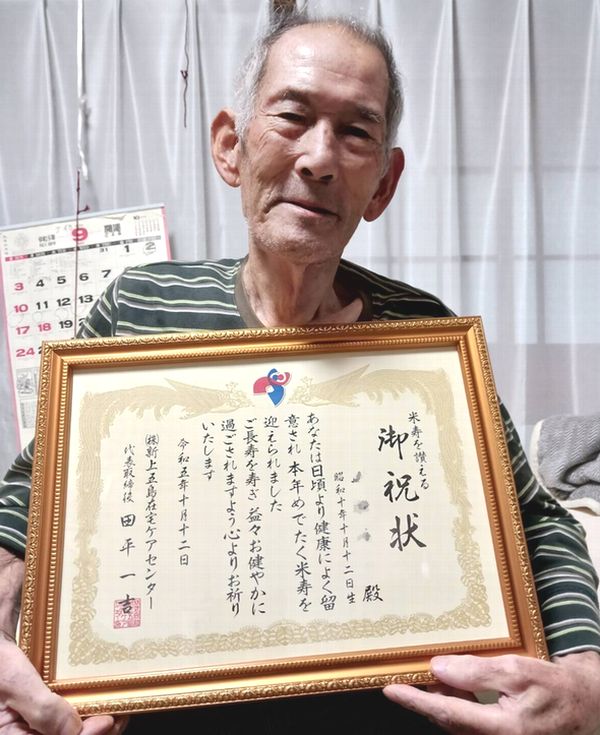 米寿を讃える
御祝状
昭和十年十月十二日生
殿
あなたは日頃より健康によく留
意され 本年めでたく米寿を
迎えられました
ご長寿を寿ぎ 益々お健やかに
過ごされますよう心よりお祈り
いたします
令和五年十月十二日
㈱新上五島在宅ケアセンター
代表取締役 田平一吉
9
31 1 2
3 4 5 6 7
10 11 12 13
17 18 19
24 25